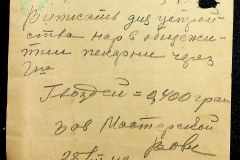 выписать для устрой
ства нар в общежи-
тии пекарни через
Гвоздей = 0,400 грам
Зав Мастерской